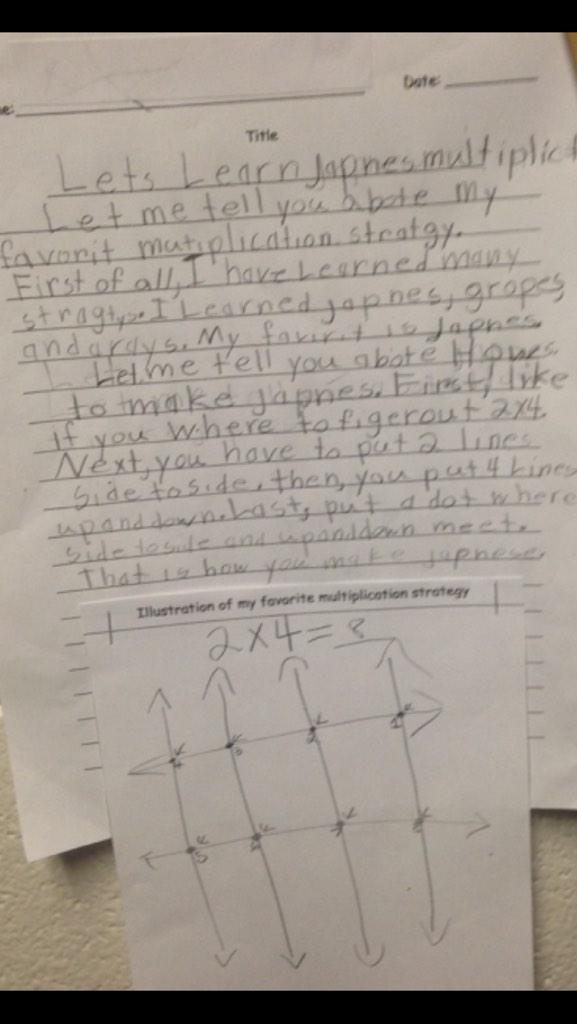 Date:
Title
Lets Learn Japnes multiplict
Let me tell you abote my
favorit mutiplication stratgy.
First of all, I have Learned many
I Learned Japnes, gropes,
and arays. My favirit is Japnes.
Let me tell you abote Hows
to make japnes. First, like
if you where to figerout 2x4.
Next, you have to put 2 lines
side to side. then, you put 4 Lines
up and down. Last, put a dot where
side to side and upanddown meet.
That is how you make japnese.
Illustration of my favorite multiplication strategy
2x4=8
4 3 2 1
5 6 7 8